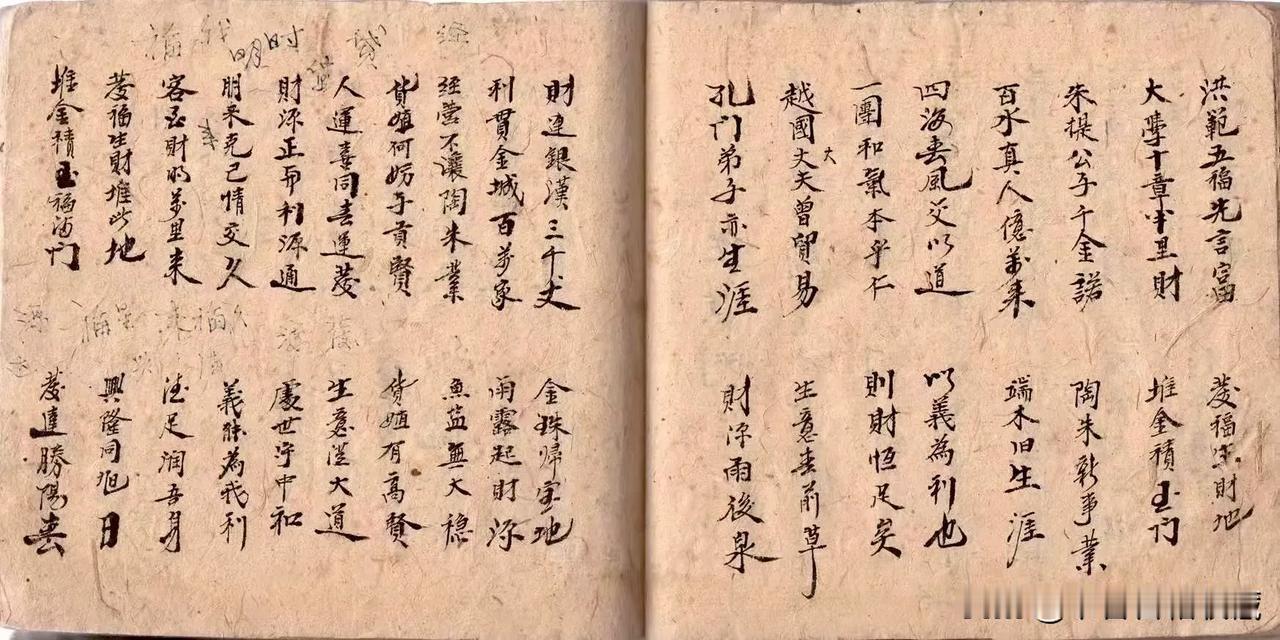 洪範五福先言富
大學十章半里財
朱提公子千金諾
百水真人億萬来
四海春風交以道
一團和氣本乎仁
越國丈夫曾貿易
大
孔门弟子亦生涯
發福生財地
堆金積玉门
陶朱新事業
端木旧生涯
以義為利也
則財恒足矣
生意春前草
財源雨後泉
財連銀漢三千丈
利貫金城百萬家
经营不讓陶朱業
貨殖何妨子貢賢
人運喜同春運發
財源正与利源通
朋来克己情交久
客至財明萬里来
發福生財堆此地
堆金積玉福满门
金珠歸宝地
雨露起財源
魚盐無大穏
貨殖有高賢
生意從大道
處世守中和
義能為我利
足润吾身
興隆同旭日
發達勝陽春
时
明